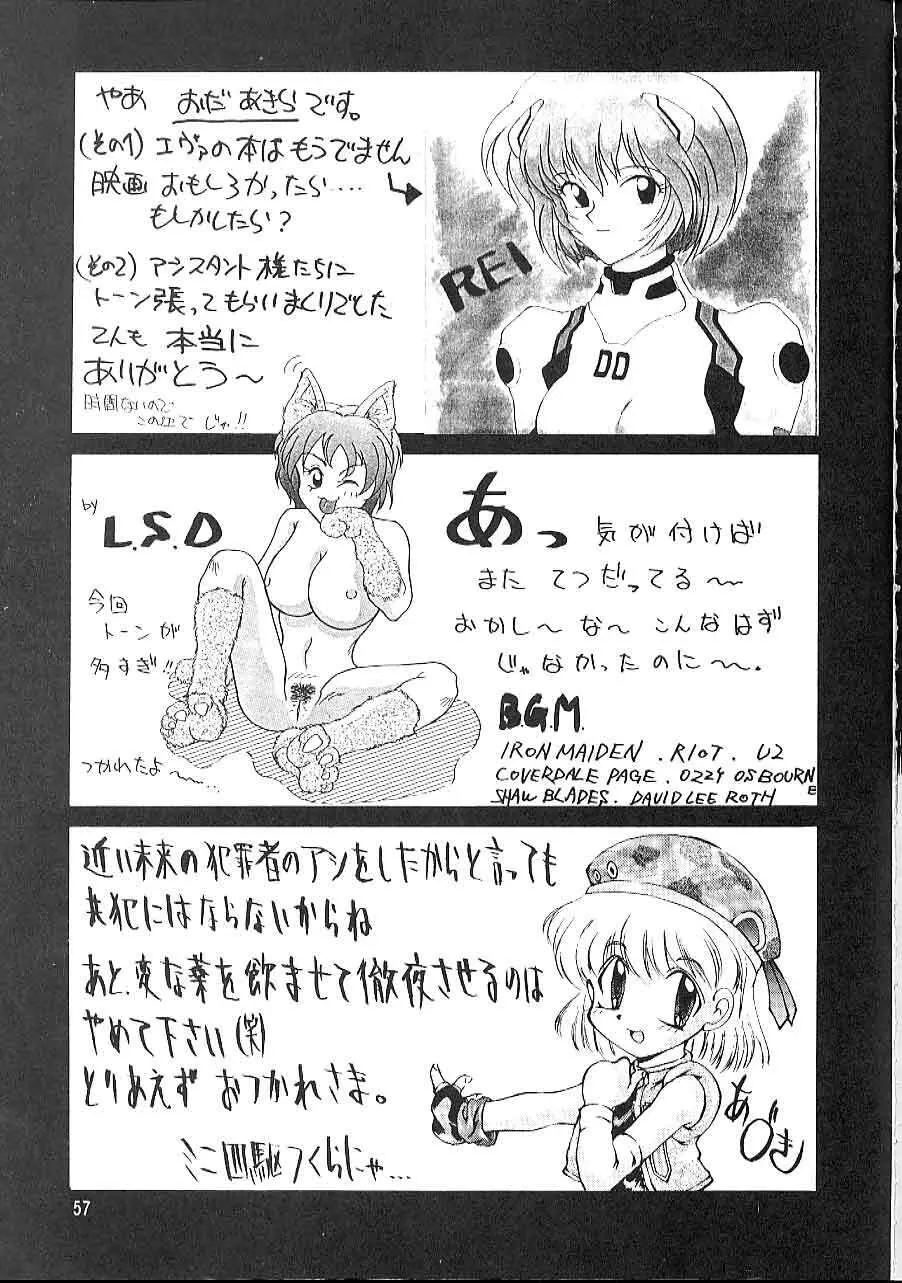 やあ おだあきらです。
(その1) エヴァの本はもうでません
映画 おもしろかったら‥‥
もしかしたら?
(その2) アシスタント様たちに
トーン張ってもらいまくりでした
でんも 本当に
ありがとう〜
時間ないので
この辺で じゃ!!
REI
00
by
L.S.D
今回
トーンが
多すぎ!!
つかれたよ〜
あっ 気が付けば
また てつだってる〜
おかし〜 な〜 こんなはず
じゃなかったのに〜.
B.G.M.
IRON MAIDEN . RIOT . U2
COVERDALE PAGE . OZZY OSBOURNE
SHAW BLADES . DAVID LEE ROTH
近い未来の犯罪者のアシをしたからと言っても
共犯にはならないからね
あと、変な薬を飲ませて徹夜させるのは
やめて下さい(笑)
とりあえず おつかれさま。
ミニ四駆つくらにゃ…
あづき
57